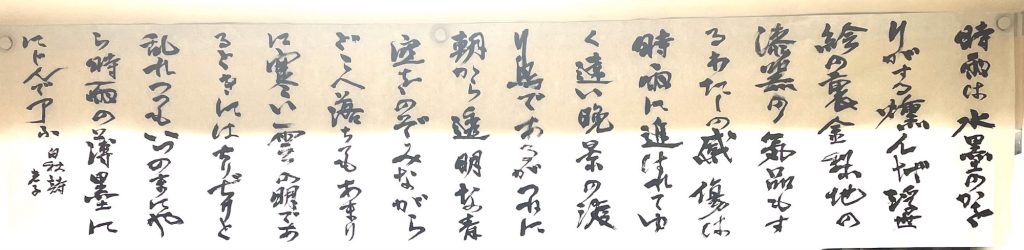 時雨は水墨のかを
りがする燻んだ浮世
絵の裏金梨地の
漆器の気品もす
るわたしの感傷は
時雨に追はれてゆ
く遠い晩景の渡
り鳥であるがつねに
朝から透明な青
空をのぞみながら
どこへ落ちてもあまり
に寒い雲の明であ
るときにはちりぢりと
乱れつつもいつのまにや
ら時雨の薄墨に
にじんで了ふ
白秋詩